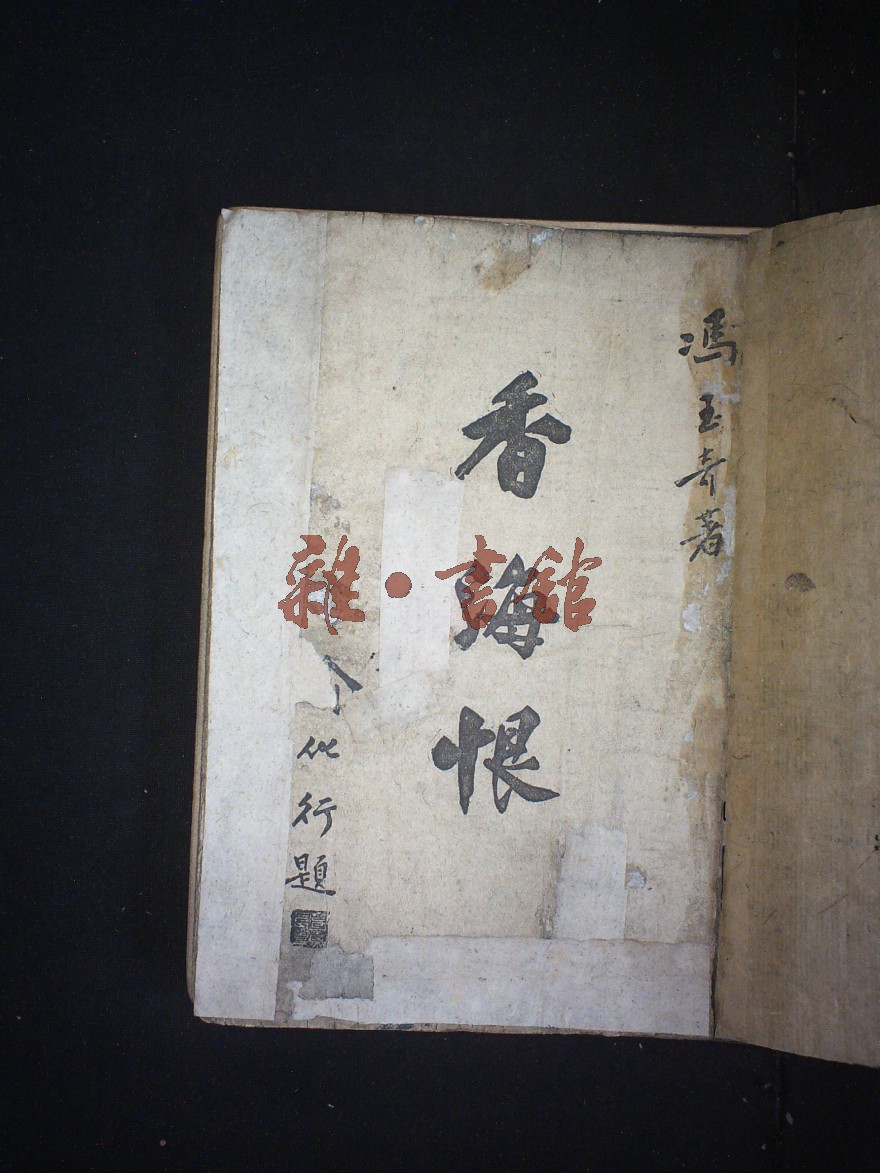 馮玉奇著
香海恨
化行題
雜·書館